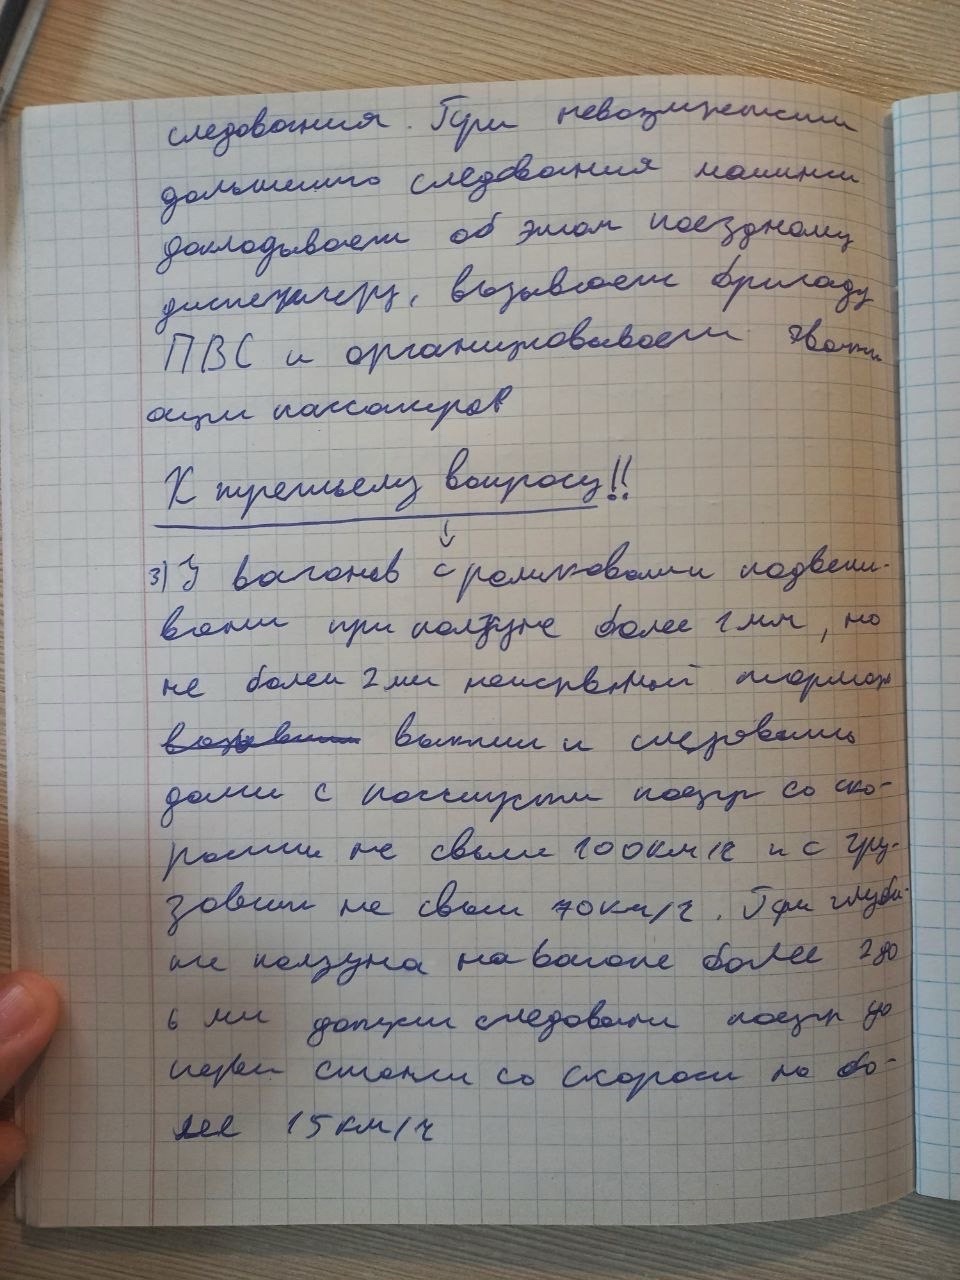 следования. При невозможности
дальшего следования машинист
докладывает об этом поездному
диспетчеру, вызывает бригаду
ПВС и организовывает эваки
ации пассажиров
К третьему вопросу!!
3) У вагонов с роликовыми подшип-
вами при ползуне более 1 мм, но
не более 2 мм неисправный тормоз
выкл и следовать
далее с пассижтт поезд со ско-
рости не свыше 100км/ч и с гру-
зовым не свыш 70км/ч. При глуби-
не ползуна на вагоне более 2 до
6 мм допуск следовани поезд до
перв станци со скорост не бо-
лее 15км/ч